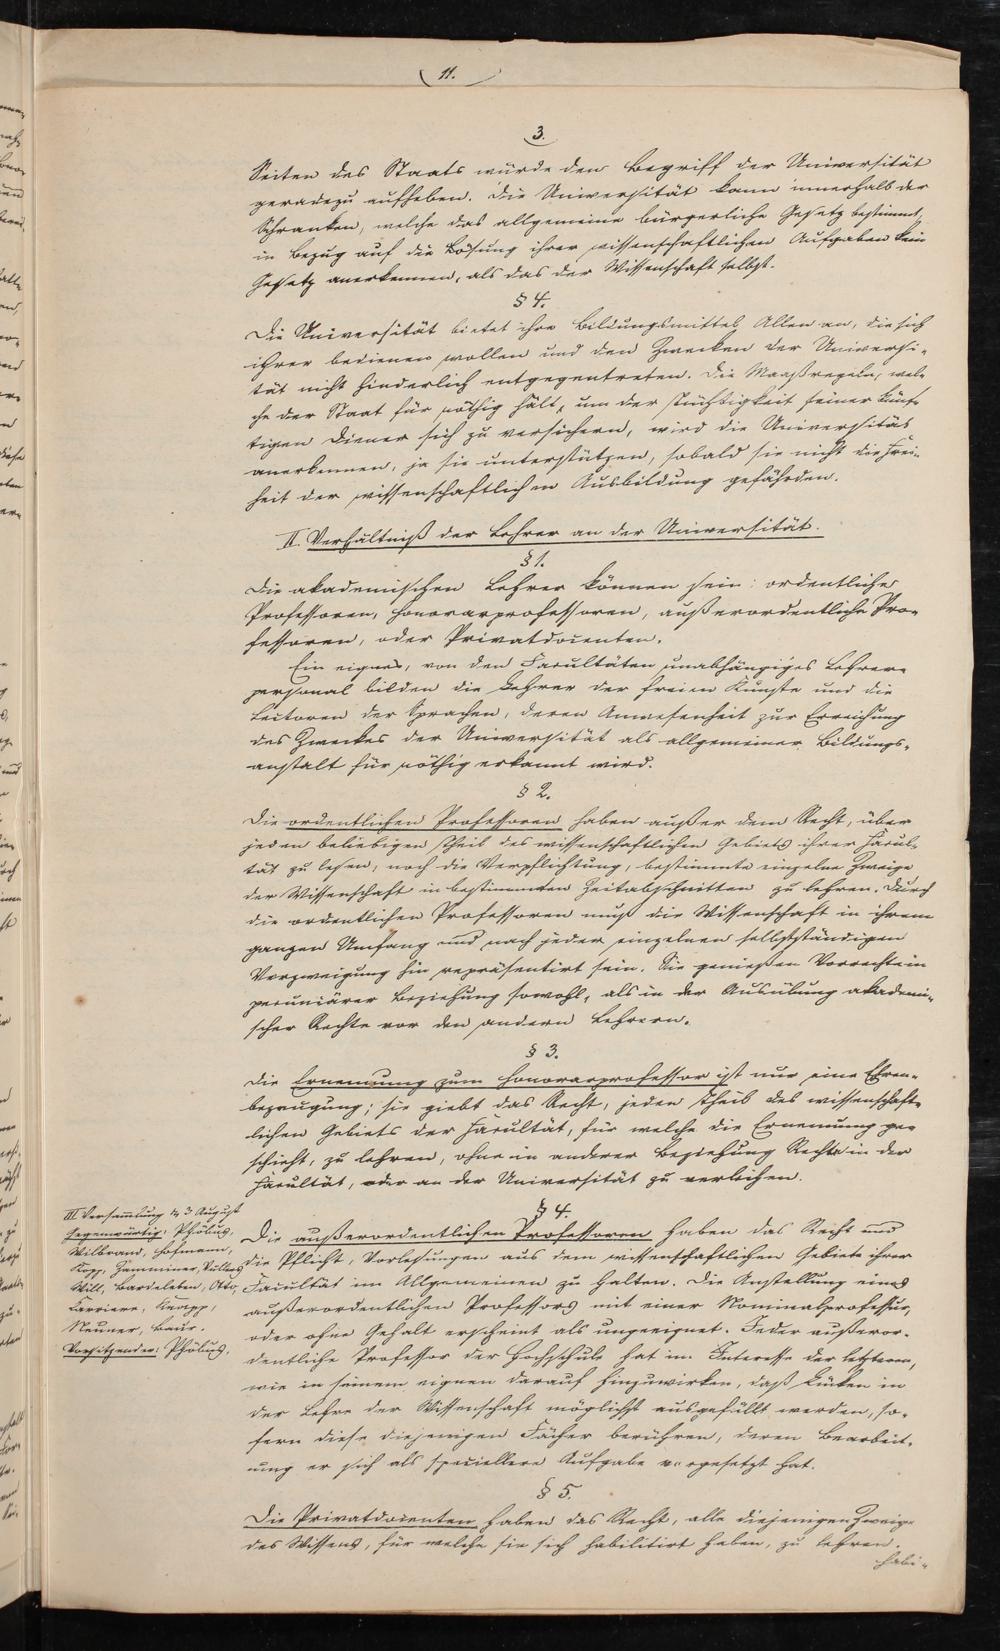 11.
3.
Seiten des Staats würde den Begriff der Universität
geradezu aufheben. Die Universität kann innerhalb der
Schranken, welche das allgemeine bürgerliche Gesetz bestimmt,
in Bezug auf die Lösung ihrer wissenschaftlichen Aufgaben kein
Gesetz anerkennen, als das der Wissenschaft selbst.
§ 4.
Die Universität bietet ihre Bildungsmittel Allen an, die sich
ihrer bedienen wollen und den Zwecken der Universi-
tät nicht hinderlich entgegentreten. Die Maaßregeln, wel-
che der Staat für nöthig hält, um der Tüchtigkeit seiner künf-
tigen Diener sich zu versichern, wird die Universität
anerkennen, ja sie unterstützen, sobald sie nicht die Frei-
heit der wissenschaftlichen Ausbildung gefährden.
II. Verhältniß der Lehrer an der Universität.
§ 1.
Die akademischen Lehrer können sein: ordentliche
Professoren, Honorarprofessoren, außerordentliche Pro-
fessoren, oder Privatdocenten.
Ein eignes, von den Facultäten unabhängiges Lehrer-
personal bilden die Lehrer der freien Künste und die
Lectoren der Sprachen, deren Anwesenheit zur Erreichung
des Zweckes der Universität als allgemeiner Bildungs-
anstalt für nöthig erkannt wird.
§ 2.
Die ordentlichen Professoren haben außer dem Recht, über
jeden beliebigen Theil des wissenschaftlichen Gebiets ihrer Facul-
tät zu lesen, noch die Verpflichtung, bestimmte einzelne Zweige
der Wissenschaft in bestimmten Zeitabschnitten zu lehren. Durch
die ordentlichen Professoren muß die Wissenschaft in ihrem
ganzen Umfang und nach jeder einzelnen selbstständigen
Verzweigung hin repräsentirt sein. Sie genießen Vorrechte in
pecuniärer Beziehung sowohl, als in der Ausübung akademi-
scher Rechte vor den andern Lehrern.
§ 3.
Die Ernennung zum Honorarprofessor ist nur eine Ehren-
bezeugung; sie giebt das Recht, jeden Theil des wissenschaft-
lichen Gebiets der Facultät, für welche die Ernennung ge-
schieht, zu lehren, ohne in anderer Beziehung Rechte in der
Facultät, oder an der Universität zu verleihen.
III Versammlung d. 3 August
Gegenwärtig: Phöbus,
Wilbrand, Hofmann,
Kopp, Zamminer, Vullers,
Will, Bardeleben, Otto,
Carriere, Knapp,
Neuner, Baur.
Vorsitzender: Phöbus.
§ 4.
Die außerordentlichen Professoren haben das Recht und
die Pflicht, Vorlesungen aus dem wissenschaftlichen Gebiete ihrer
Facultät im Allgemeinen zu halten. Die Anstellung eines
außerordentlichen Professors mit einer Nominalprofessur,
oder ohne Gehalt erscheint als ungeeignet. Jeder außeror-
dentliche Professor der Hochschule hat im Interesse der letzteren,
wie in seinem eignen darauf hinzuwirken, daß Lücken in
der Lehre der Wissenschaft möglichst ausgefüllt werden, so-
fern diese diejenigen Fächer berühren, deren Bearbeit-
ung er sich als speciellere Aufgabe vorgesetzt hat.
§ 5.
Die Privatdocenten haben das Recht, alle diejenigen Zweige
des Wissens, für welche sie sich habilitirt haben, zu lehren.
Habi-